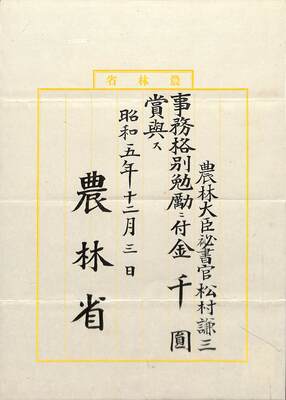 省林農
農林大臣秘書官松村謙三
事務格別勉勵ニ付金千圓
賞與ス
昭和五年十二月三日
農林省